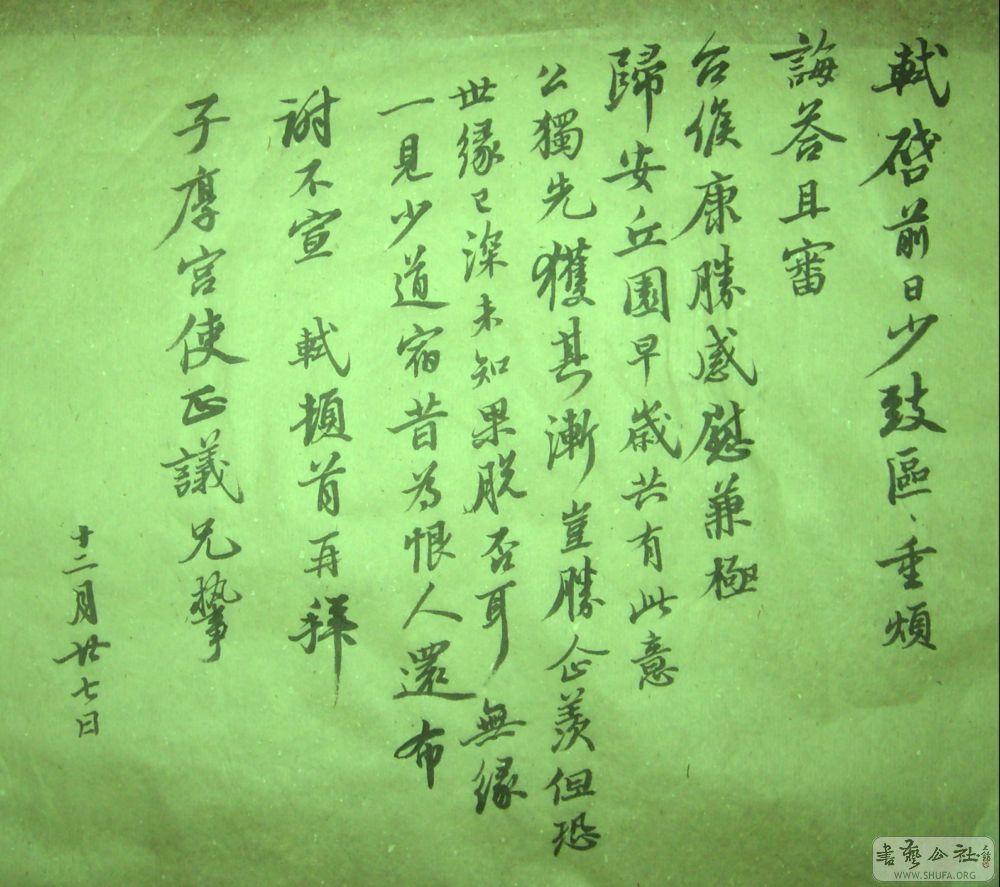 軾啓前日少致區〻重煩
誨答且審
台候康勝感慰兼極
歸安丘園早歲共有此意
公獨先獲其漸豈勝企羨但恐
世緣已深未知果脱否耳無緣
一見少道宿昔為恨人還布
謝不宣 軾頓首再拜
子厚宮使正議兄執事
十二月廿七日
書藝公社
WWW.SHUFA.ORG